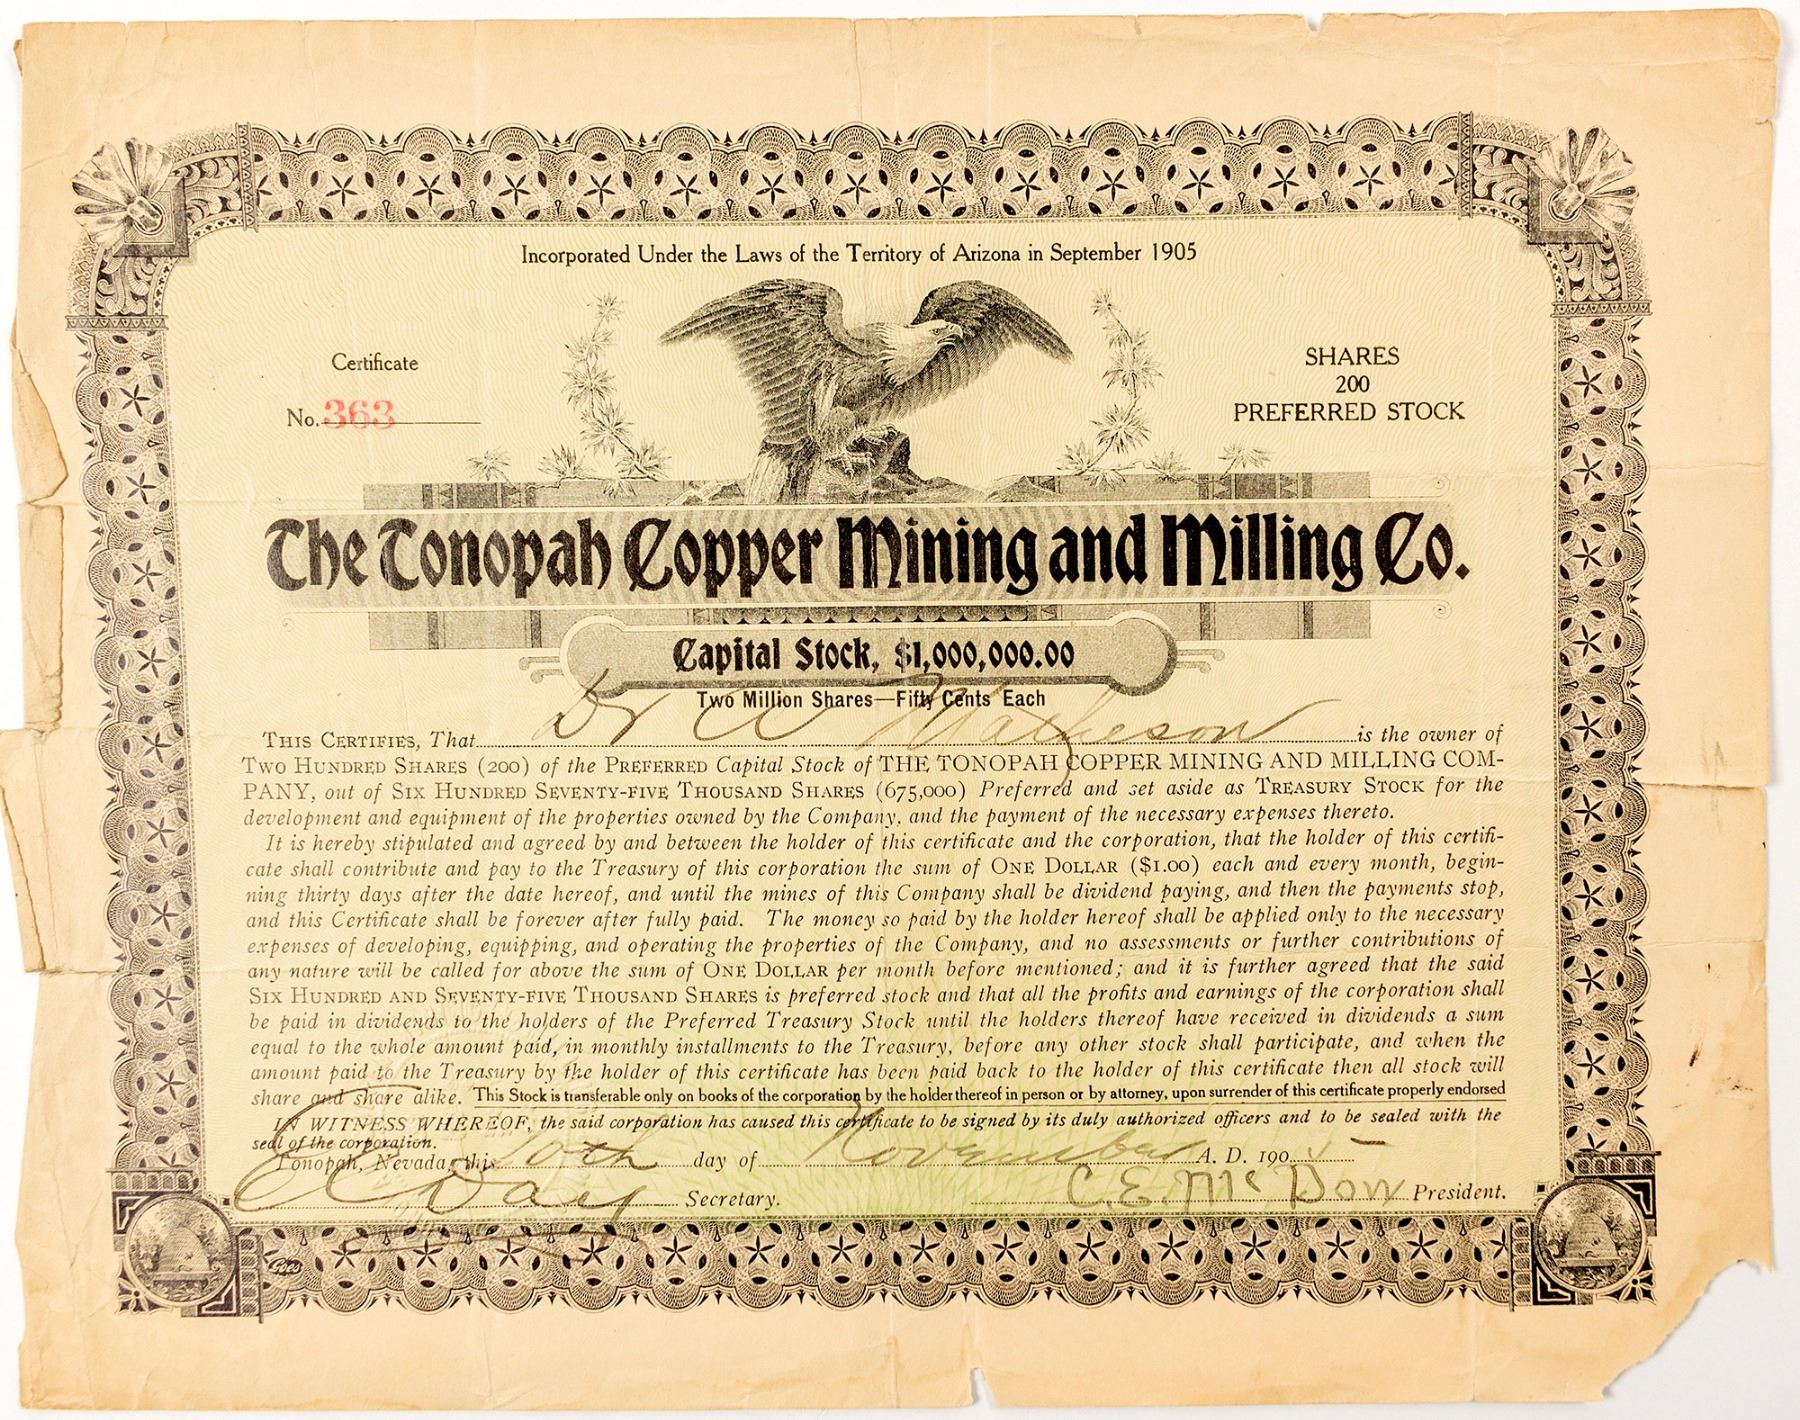 Incorporated Under the Laws of the Territory of Arizona in September 1905
Certificate
No. 363
SHARES
200
PREFERRED STOCK
The Tonopah Copper Mining and Milling Co.
Capital Stock, $1,000,000.00
Two Million Shares—Fifty Cents Each
THIS CERTIFIES, That Dr A Matheson is the owner of
TWO HUNDRED SHARES (200) of the PREFERRED Capital Stock of THE TONOPAH COPPER MINING AND MILLING COM-
PANY, out of SIX HUNDRED SEVENTY-FIVE THOUSAND SHARES (675,000) Preferred and set aside as TREASURY STOCK for the
development and equipment of the properties owned by the Company, and the payment of the necessary expenses thereto.
It is hereby stipulated and agreed by and between the holder of this certificate and the corporation, that the holder of this certifi-
cate shall contribute and pay to the Treasury of this corporation the sum of ONE DOLLAR ($1.00) each and every month, begin-
ning thirty days after the date hereof, and until the mines of this Company shall be dividend paying, and then the payments stop,
and this Certificate shall be forever after fully paid. The money so paid by the holder hereof shall be applied only to the necessary
expenses of developing, equipping, and operating the properties of the Company, and no assessments or further contributions of
any nature will be called for above the sum of ONE DOLLAR per month before mentioned; and it is further agreed that the said
SIX HUNDRED AND SEVENTY-FIVE THOUSAND SHARES is preferred stock and that all the profits and earnings of the corporation shall
be paid in dividends to the holders of the Preferred Treasury Stock until the holders thereof have received in dividends a sum
equal to the whole amount paid, in monthly installments to the Treasury, before any other stock shall participate, and when the
amount paid to the Treasury by the holder of this certificate has been paid back to the holder of this certificate then all stock will
share and share alike. This Stock is transferable only on books of the corporation by the holder thereof in person or by attorney, upon surrender of this certificate properly endorsed
IN WITNESS WHEREOF, the said corporation has caused this certificate to be signed by its duly authorized officers and to be sealed with the
seal of the corporation.
Tonopah, Nevada, this 10th day of November A. D. 1905
Day Secretary. C. E. McDow President.
Goes